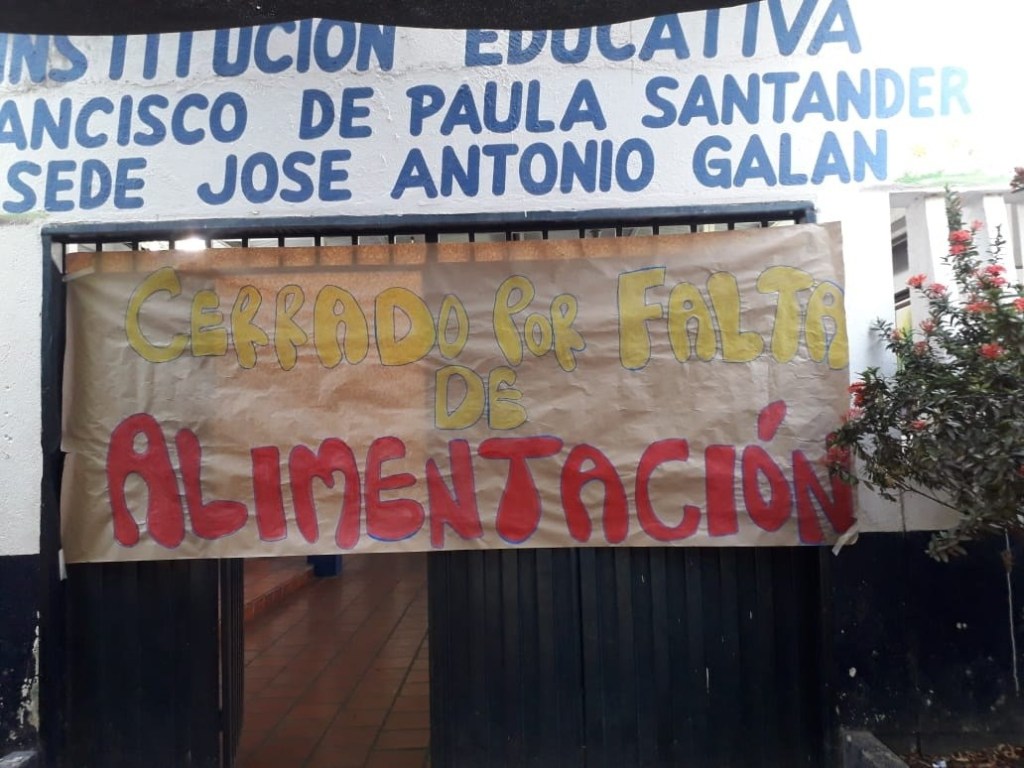 INSTITUCION EDUCATIVA
ANCISCO DE PAULA SANTANDER
SEDE JOSE ANTONIO GALAN
CERRADO POR FALTA
DE
ALIMENTACIÓN